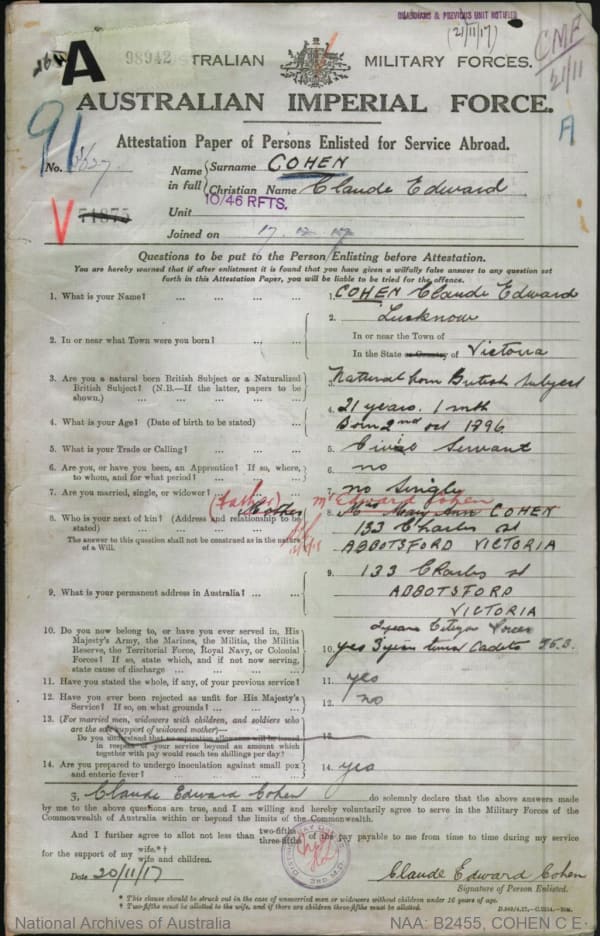 GUARDIANS & PREVIOUS UNIT NOTIFIED
(21/11/17)
CMF
21/11
A
98942
AUSTRALIAN MILITARY FORCES.
AUSTRALIAN IMPERIAL FORCE.
91
A
Attestation Paper of Persons Enlisted for Service Abroad.
No.
Name in full { Surname COHEN
Christian Name Claude Edward
V
Unit 10/46 RFTS.
Joined on
Questions to be put to the Person Enlisting before Attestation.
You are hereby warned that if after enlistment it is found that you have given a wilfully false answer to any question set
forth in this Attestation Paper, you will be liable to be tried for the offence.
1. What is your Name? ... ... ... ... 1. COHEN Claude Edward
2. In or near what Town were you born? ... ... 2. Lucknow
In or near the Town of
In the State or Country of Victoria
3. Are you a natural born British Subject or a Naturalized
British Subject? (N.B.—If the latter, papers to be
shown.) ... ... ... ... 3. Natural born British Subject
4. What is your Age? (Date of birth to be stated) ... 4. 21 years. 1 mth
Born 2nd Oct 1896
5. What is your Trade or Calling? ... ... ... 5. Civil Servant
6. Are you, or have you been, an Apprentice? If so, where,
to whom, and for what period? ... ... 6. no
7. Are you married, single, or widower? ... ... 7. no Single
(Father) Mother Mr Edward Cohen
8. Who is your next of kin? (Address and relationship to be
stated) ... ... ... 8. Mrs Mary Ann COHEN
The answer to this question shall not be construed as in the nature
of a Will.
133 Charles st
ABBOTSFORD VICTORIA
9. What is your permanent address in Australia? ... ... 9. 133 Charles st
ABBOTSFORD
VICTORIA
10. Do you now belong to, or have you ever served in, His
Majesty's Army, the Marines, the Militia, the Militia
Reserve, the Territorial Force, Royal Navy, or Colonial
Forces? If so, state which, and if not now serving,
state cause of discharge ... ... ... 10. 2 years Citizen Forces
yes 3 years Senior Cadets
11. Have you stated the whole, if any, of your previous service? 11. yes
12. Have you ever been rejected as unfit for His Majesty's
Service? If so, on what grounds? ... ... 12. no
13. (For married men, widowers with children, and soldiers who
are the sole support of widowed mother)—
Do you understand that no separation allowance will be issued
in respect of your service beyond an amount which
together with pay would reach ten shillings per day? 13.
14. Are you prepared to undergo inoculation against small pox
and enteric fever? ... ... ... ... 14. yes
I, Claude Edward Cohen do solemnly declare that the above answers made
by me to the above questions are true, and I am willing and hereby voluntarily agree to serve in the Military Forces of the
Commonwealth of Australia within or beyond the limits of the Commonwealth.
And I further agree to allot not less than two-fifths three-fifths of the pay payable to me from time to time during my service
for the support of my wife.*†
wife and children.
Date 20/11/17
Claude Edward Cohen
Signature of Person Enlisted.
* This clause should be struck out in the case of unmarried men or widowers without children under 16 years of age.
† Two-fifths must be allotted to the wife, and if there are children three-fifths must be allotted.
National Archives of Australia
NAA: B2455, COHEN C E